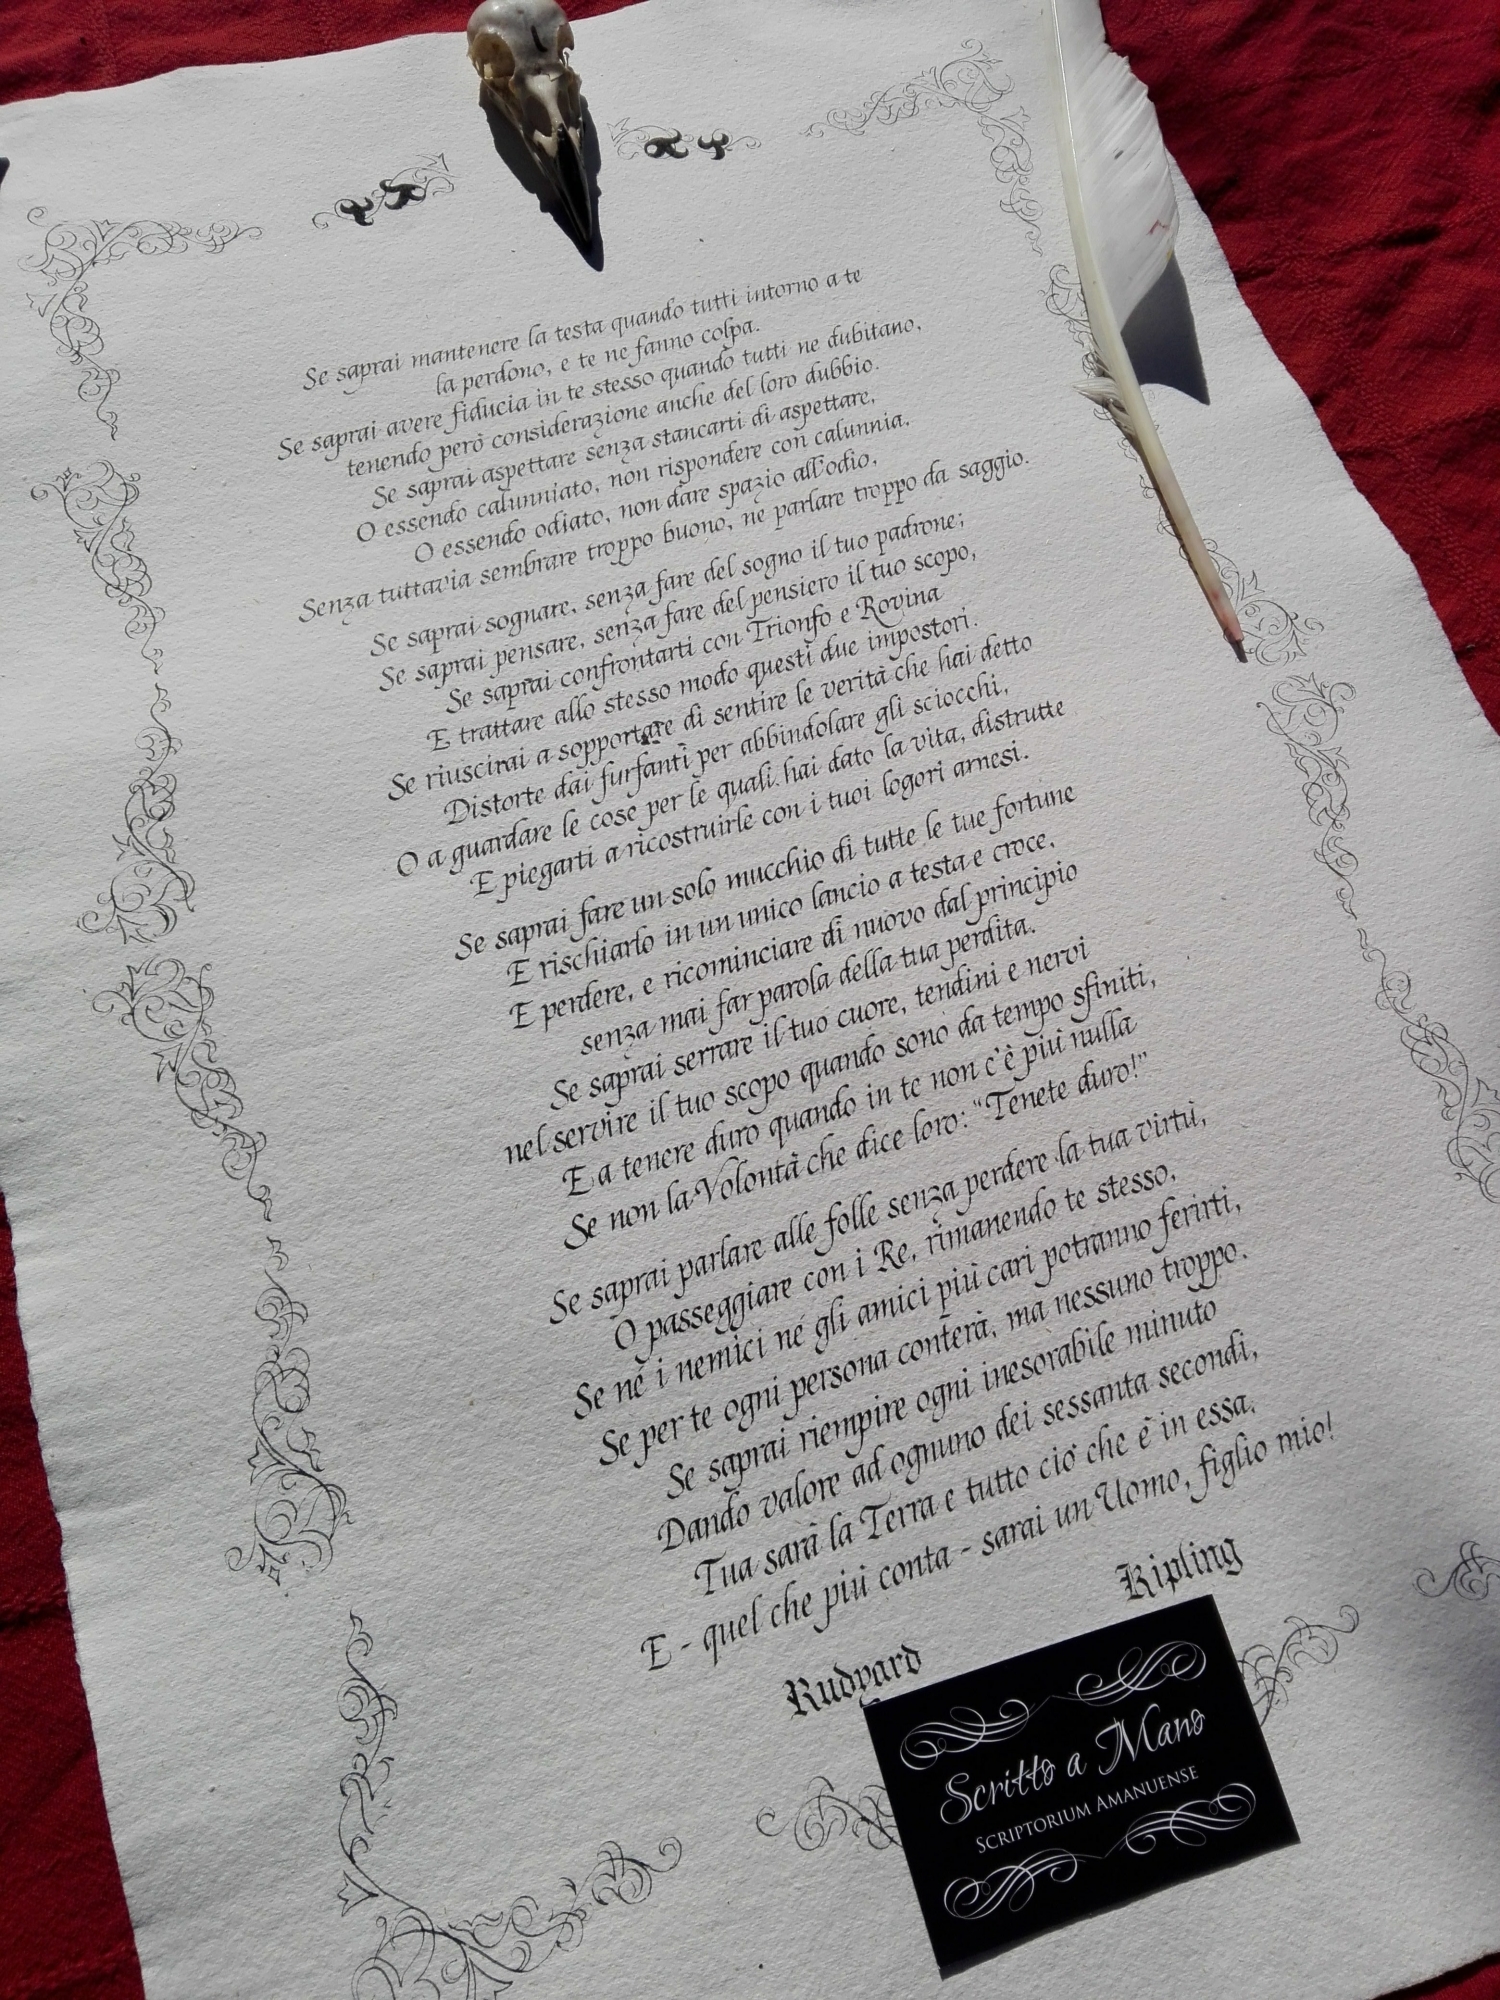 Se saprai mantenere la testa quando tutti intorno a te
la perdono, e te ne fanno colpa.
Se saprai avere fiducia in te stesso quando tutti ne dubitano,
tenendo però considerazione anche del loro dubbio.
Se saprai aspettare senza stancarti di aspettare,
O essendo calunniato, non rispondere con calunnia,
O essendo odiato, non dare spazio all'odio,
Senza tuttavia sembrare troppo buono, ne parlare troppo da saggio.
Se saprai sognare, senza fare del sogno il tuo padrone;
Se saprai pensare, senza fare del pensiero il tuo scopo,
Se saprai confrontarti con Trionfo e Rovina
E trattare allo stesso modo questi due impostori.
Se riuscirai a sopportare di sentire le verità che hai detto
Distorte dai furfanti per abbindolare gli sciocchi,
O a guardare le cose per le quali hai dato la vita, distrutte
E piegarti a ricostruirle con i tuoi logori arnesi.
Se saprai fare un solo mucchio di tutte le tue fortune
E rischiarlo in un unico lancio a testa e croce,
E perdere, e ricominciare di nuovo dal principio
senza mai far parola della tua perdita.
Se saprai serrare il tuo cuore, tendini e nervi
nel servire il tuo scopo quando sono da tempo sfiniti,
E a tenere duro quando in te non c'è più nulla
Se non la Volontà che dice loro: "Tenete duro!"
Se saprai parlare alle folle senza perdere la tua virtù,
O passeggiare con i Re, rimanendo te stesso,
Se né i nemici né gli amici più cari potranno ferirti,
Se per te ogni persona conterà, ma nessuno troppo.
Se saprai riempire ogni inesorabile minuto
Dando valore ad ognuno dei sessanta secondi,
Tua sarà la Terra e tutto ciò che è in essa,
E - quel che più conta - sarai un Uomo, figlio mio!
Rudyard Kipling
Scritto a Mano
Scriptorium Amanuense